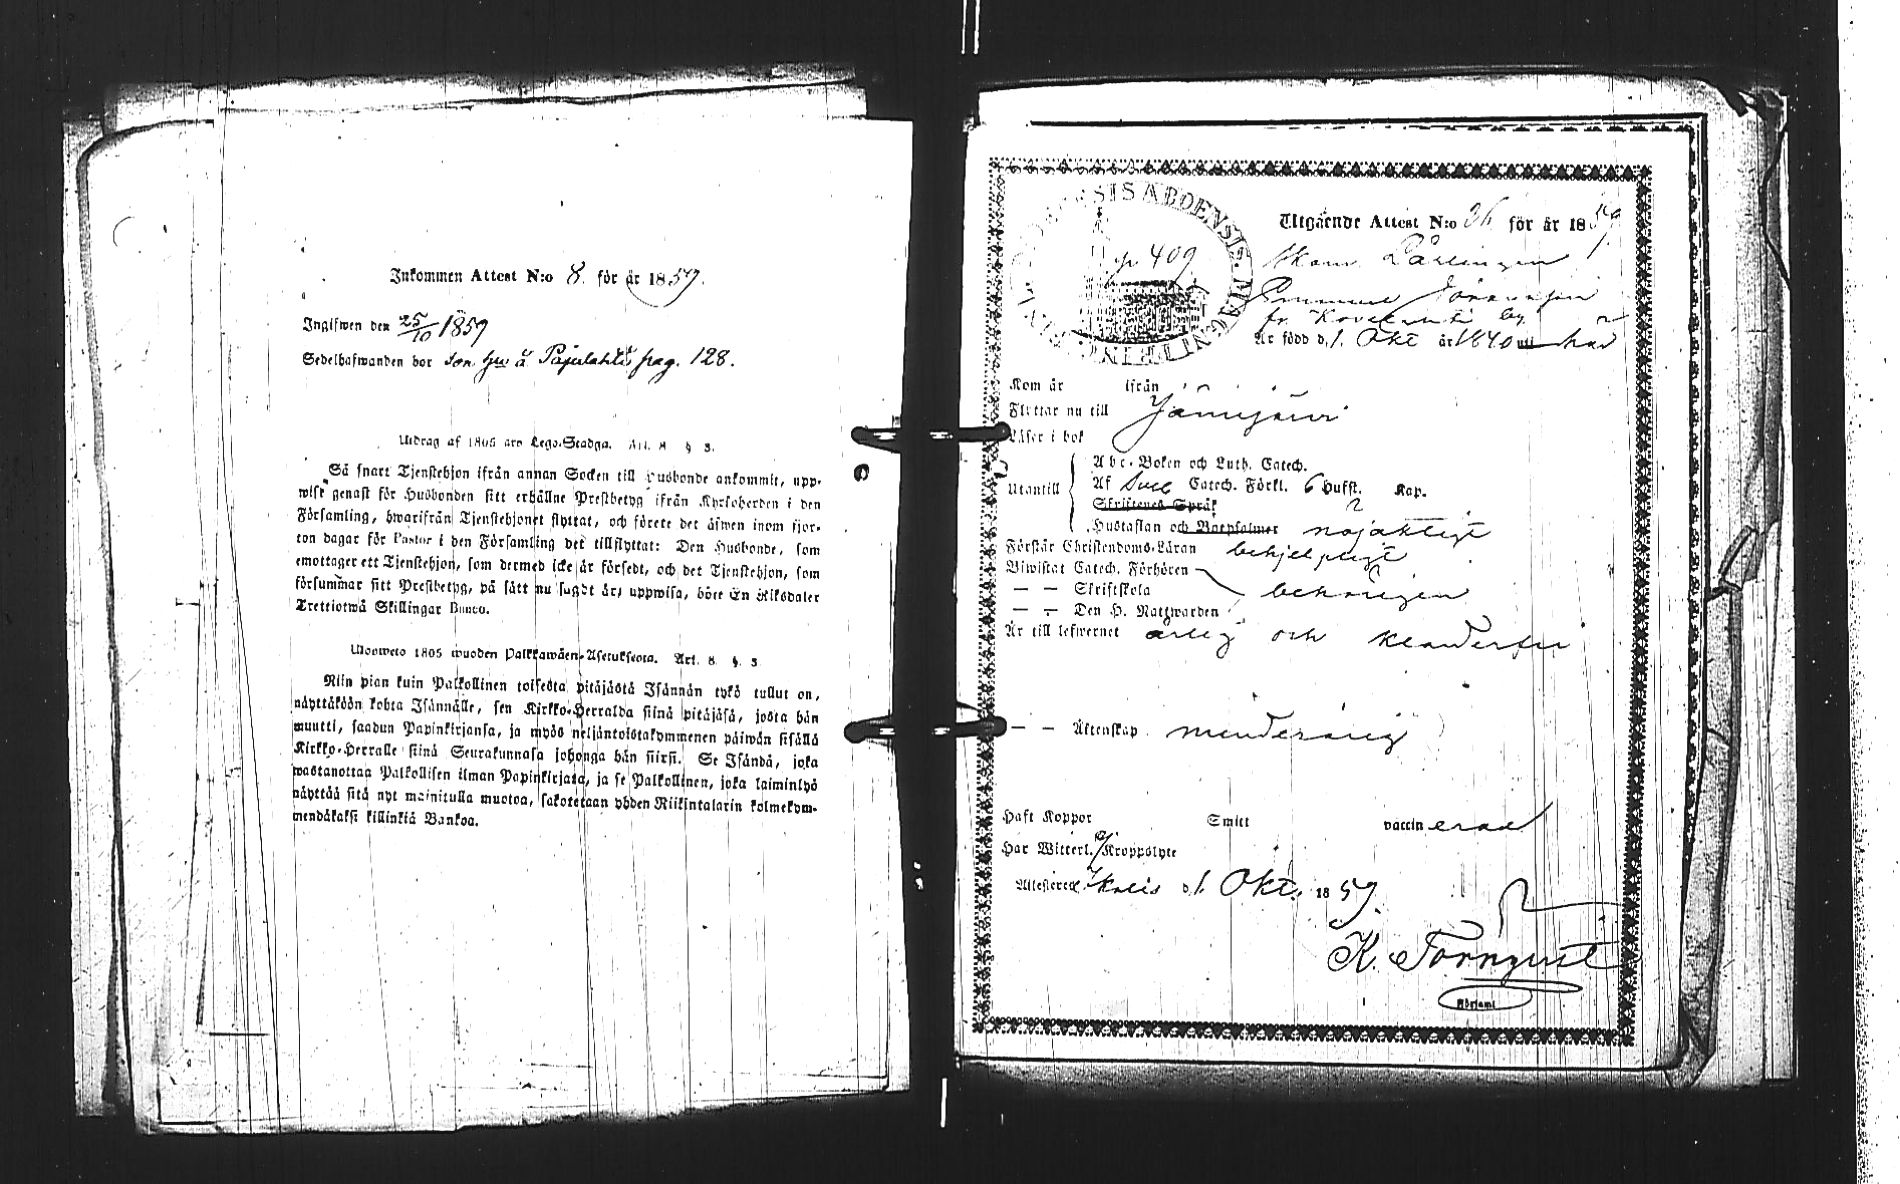 Inkommen Attest N:o 8. för år 1859.
Ingifwen den 25/10 1859
Sedelhafwanden bor som å Pajulahti pag. 128.
Utdrag af 1805 års Lego-Stadga. Art. 8 § 3.
Så snart Tjenstehjon ifrån annan Socken till Husbonde ankommit, upp-
wise genast för Husbonden sitt erhållne Prestbetyg ifrån Kyrkoherden i den
Församling, hwarifrån Tjenstehjonet flyttat, och förete det äfwen inom fjor-
ton dagar för Pastor i den Församling det tillflyttat: Den Husbonde, som
emottager ett Tjenstehjon, som dermed icke är försedt, och det Tjenstehjon, som
försummar sitt Prestbetyg, på sätt nu sagdt är, uppwisa, böte En Riksdaler
Trettiotwå Skillingar Banco.
Ulosweto 1805 wuoden Palkkawäen-Asetuksesta. Art. 8. §. 3
Niin pian kuin Palkollinen toisesta pitäjästä Isännän tykö tullut on,
näyttäköön kohta Isännälle, sen Kirkko-Herralda siinä pitäjäsä, josta hän
muutti, saadun Papinkirjansa, ja myös neljäntoistakymmenen päiwän sisällä
Kirkko-Herralle siinä Seurakunnasa johonga hän siirsi. Se Isändä, joka
wastanottaa Palkollisen ilman Papinkirjata, ja se Palkollinen, joka laiminlyö
näyttää sitä nyt mainitulla muotoa, sakotetaan yhden Riikintalarin kolmekym-
mendäkaksi killinkiä Bankoa.
ABOENSIS. MAGNI
Utgående Attest N:o 36 för år 1859.
p 409
Emanuel
fr. by
Är född d. 1. Okt år 1840 och har
Kom år ifrån
Flyttar nu till Jämijärvi
Läser i bok
Abc-Boken och Luth. Catech.
Utantill Af Sveb Catech. Förkl. 6 Hufst. Kap.
Skriftenes Språk 2
Hustaflan och Botpsalmer nöjaktigt
Förstår Christendoms-Läran behjelpligt
Biwistat Catech. Förhören
— — Skriftskola behörigen
— — Den H. Nattwarden
Är till lefwernet ärlig och klanderfri
— — Äktenskap minderårig
Haft Koppor Smitt vaccinerad
Har Witterl. Kroppslyte
Attestered. d. 1 Okt. 1859.
K. Törnqvist